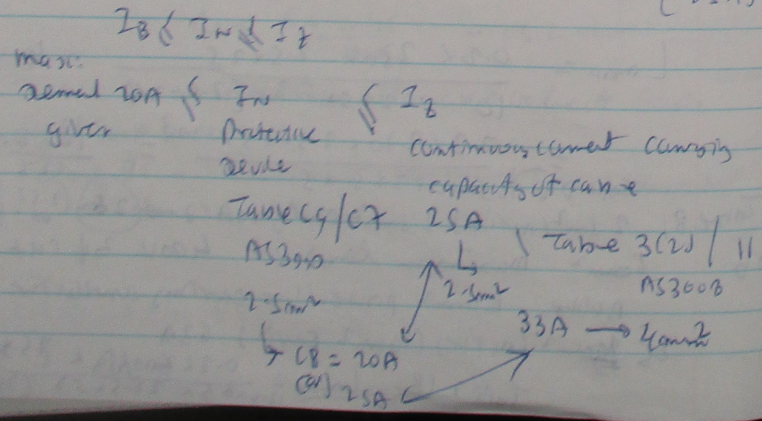 IB ≤ IN ≤ IZ
max:
demand 20A ≤ IN ≤ IZ
given Protective continuous current carrying
device capacity of cable
Table C5/C7 25A
AS3000 Table 3(2) / 11
2.5mm² 2.5mm² AS3008
33A → 4mm²
CB = 20A
(or) 25A